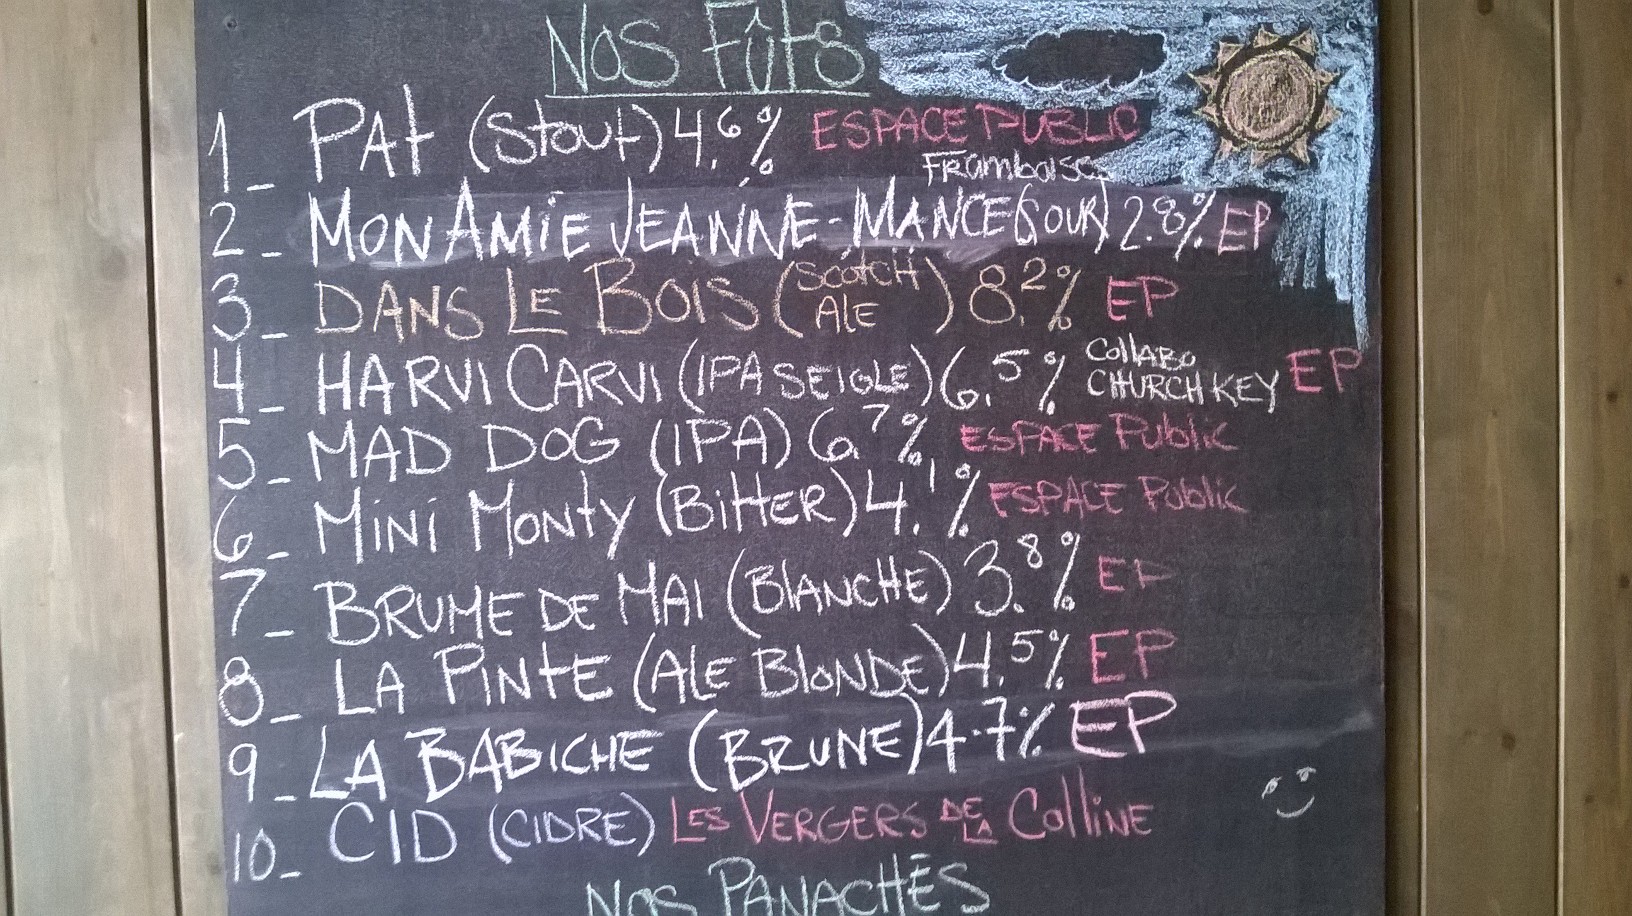 NOS FÛTS
1_ PAT (Stout) 4.6% ESPACE PUBLIC
Framboise
2_ MON AMIE JEANNE-MANCE (SOUR) 2.8% EP
3_ DANS LE BOIS (SCOTCH ALE) 8.2% EP
4_ HARVI CARVI (IPA SEIGLE) 6.5% COLLABO CHURCH KEY EP
5_ MAD DOG (IPA) 6.7% ESPACE Public
6_ MiNi MONTY (BITTER) 4.1% ESPACE Public
7_ BRUME DE MAI (BLANCHE) 3.8% EP
8_ LA PINTE (ALE BLONDE) 4.5% EP
9_ LA BABICHE (BRUNE) 4.7% EP
10_ CID (CIDRE) LES VERGERS DE LA COLLINE
NOS PANACHÉS